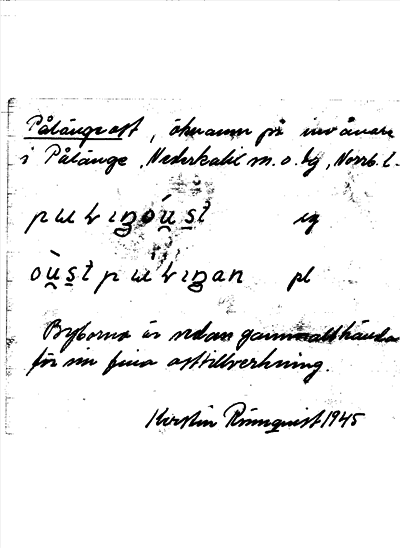 Pålängeost, öknamn på invånare
i Pålänge, Nederkalix m.o.by, Norrb.l.
sg
pl
Byborna är sedan gammalt kända
för sin fina osttillverkning.
Kerstin Rönnquist 1945